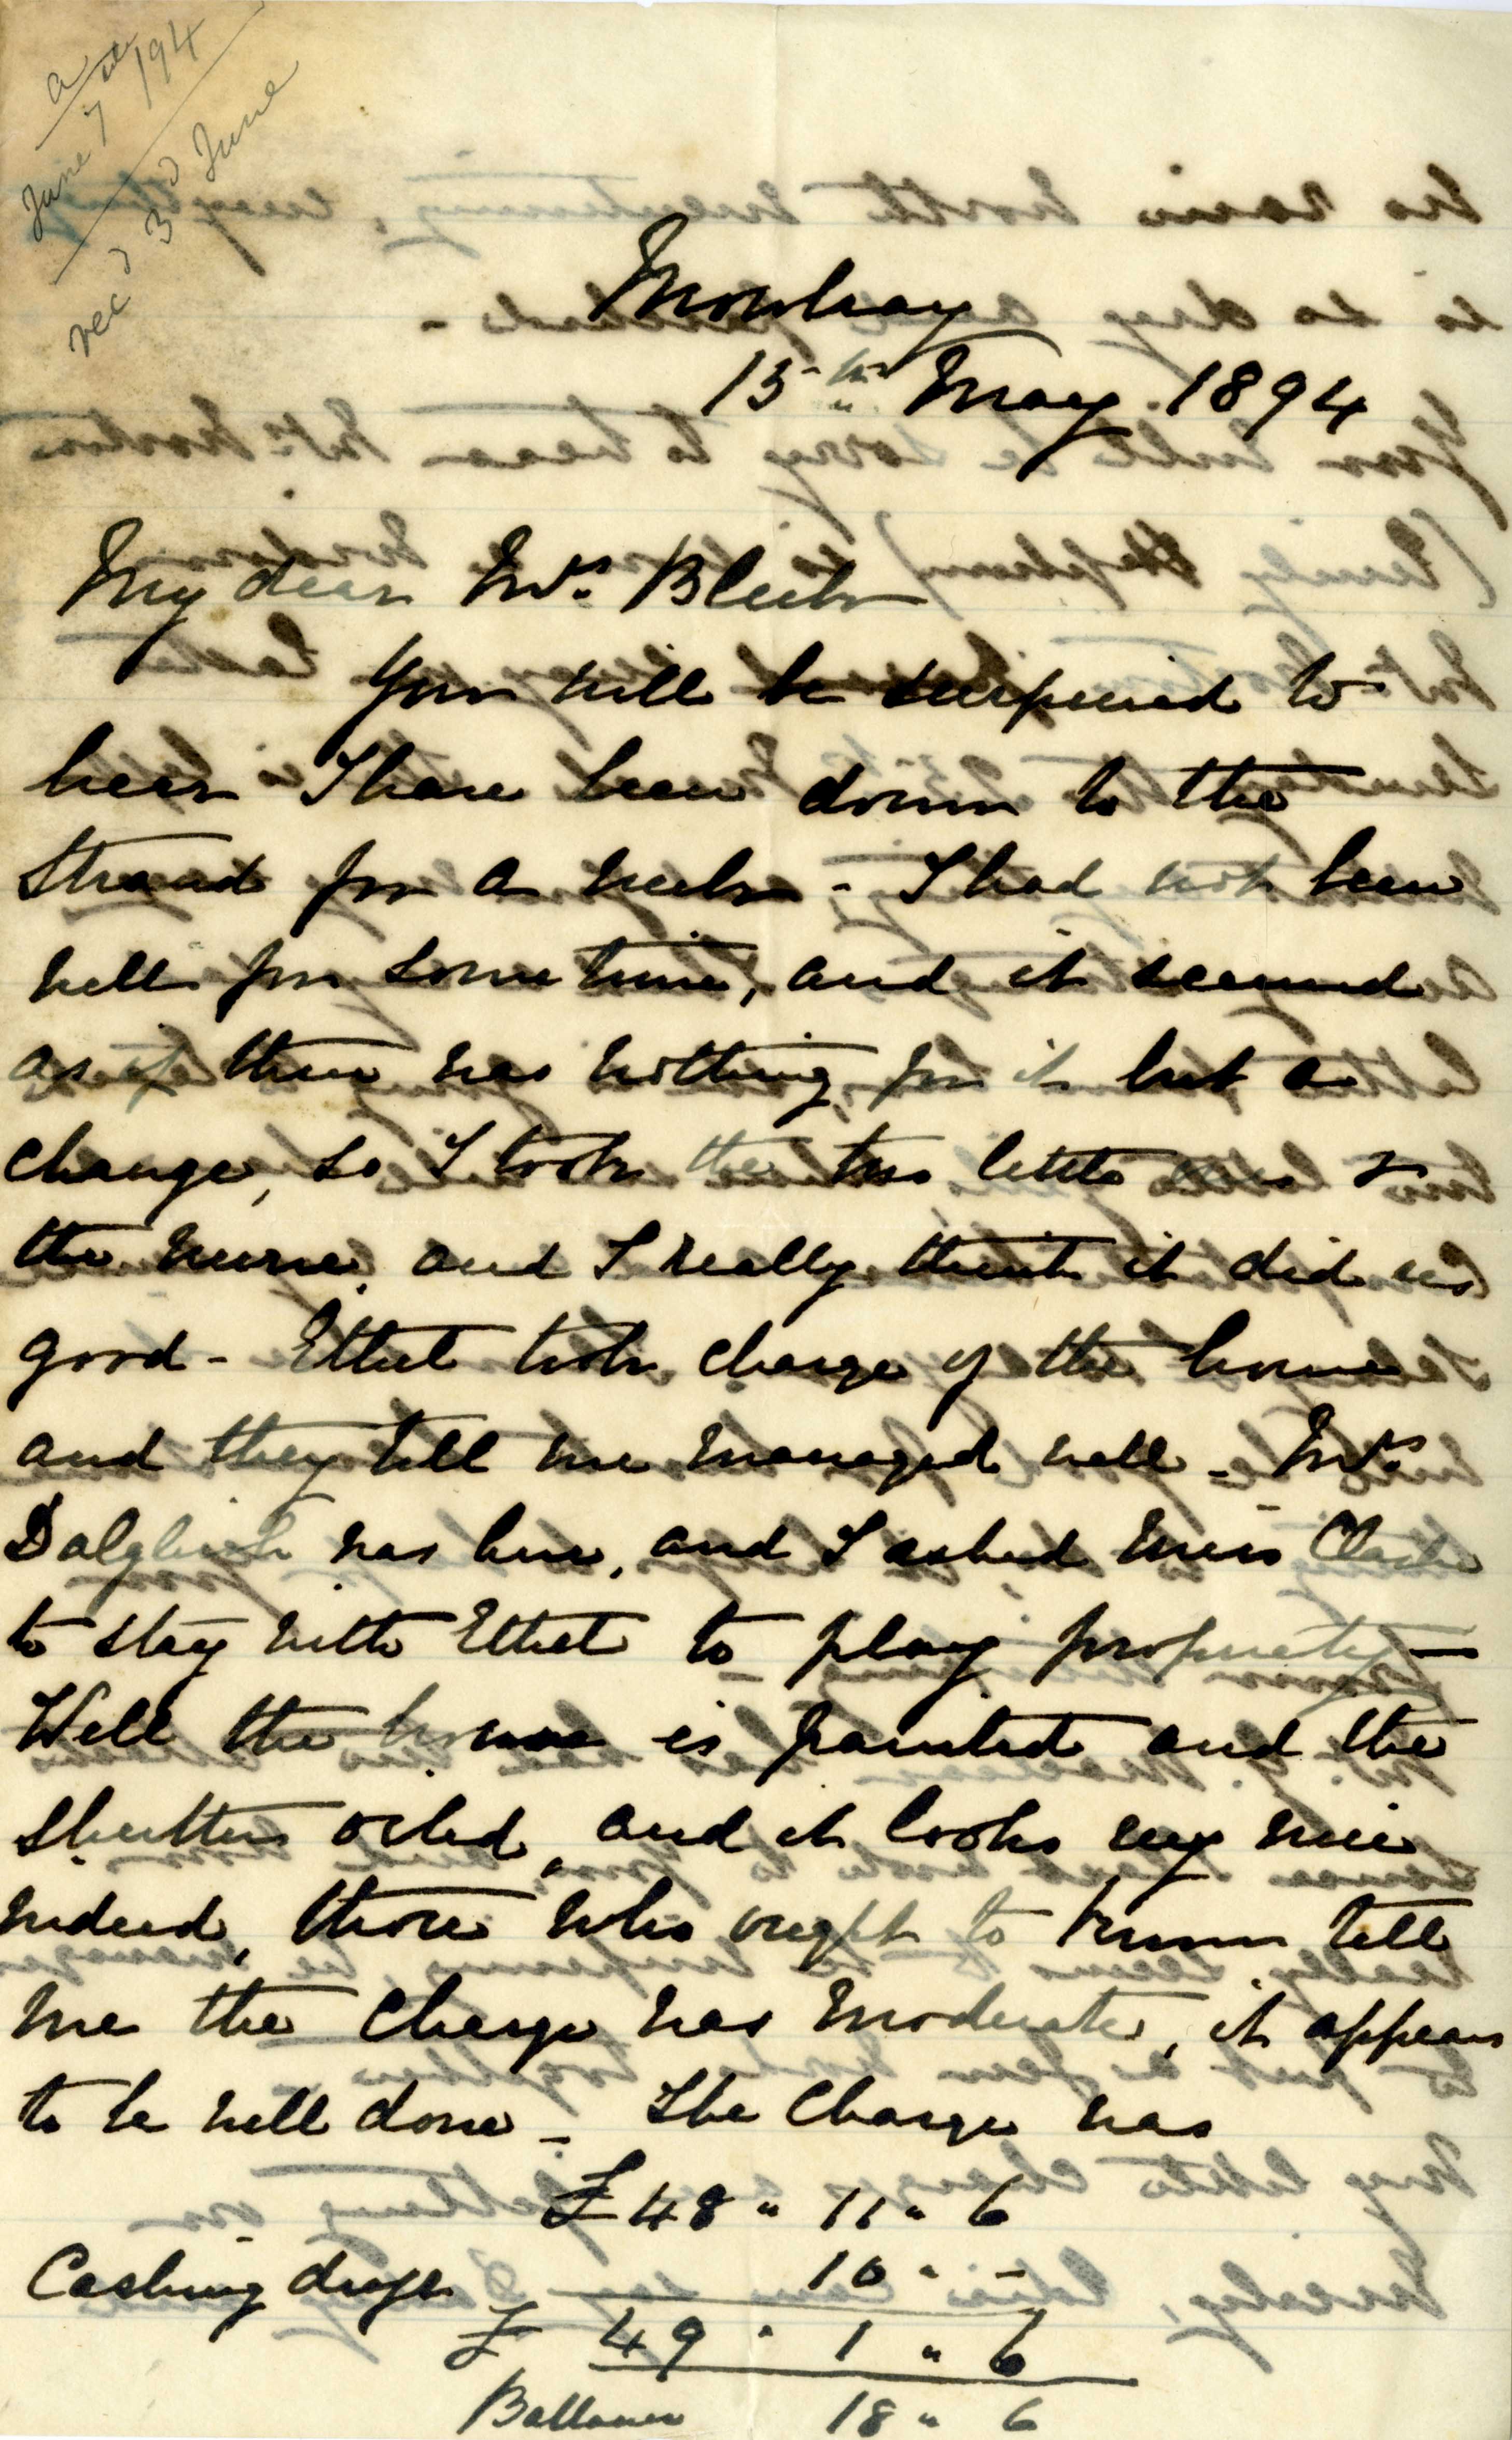 June 7 /94
recd 3d June
Mowbray
15th May 1894
My dear Mrs Bleek
You will be surprised to
hear I have been down to the
Strand for a week - I had not been
well for some time, and it seemed
as if there was nothing for it but a
change, so I took the two little ones &
the nurse, and I really think it did us
good - Ethel took charge of the house
and they tell me managed well - Mrs
Dalgleish was here, and I asked Miss Clark
to stay with Ethel to play propriety -
Well the house is painted and the
shutters oiled, and it looks very nice
indeed, those who ought to know tell
me the charge was moderate, it appears
to be well done - The charge was
£48 " 11 " 6
Cashing dufr 10 " -
£ 49 " 1 " 6
Ballance 18 " 6